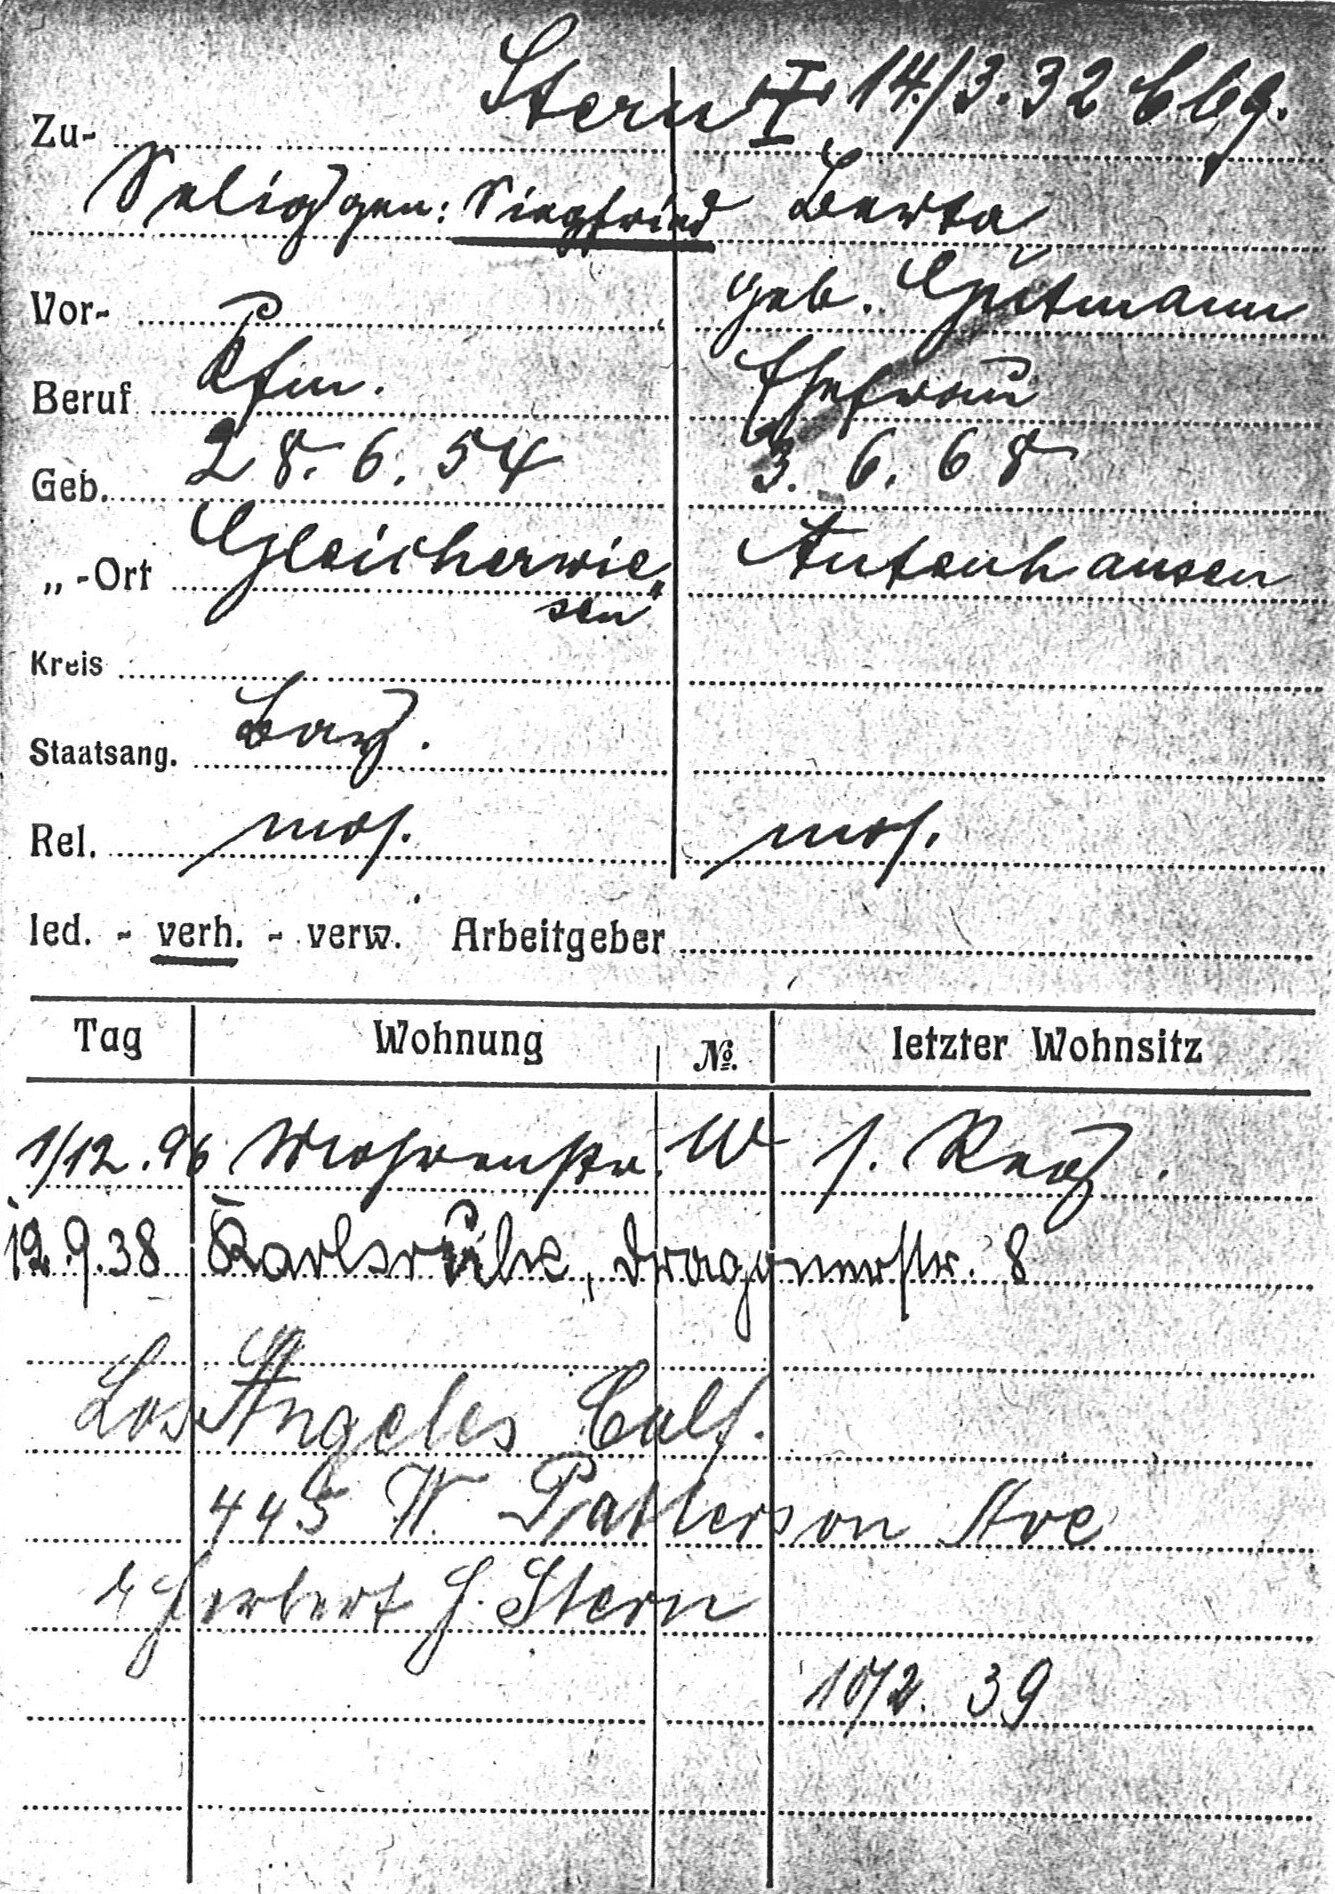 Zu- Stern I 14./3.32 Cbg.
Seligs gen: Siegfried Berta
Vor- geb. Gutmann
Beruf Kfm. Ehefrau
Geb. 28. 6. 54 3. 6. 68
„-Ort Gleicherwie„ Autenhausen
sen
Kreis
Staatsang. Bay.
Rel. mos. mos.
led. - verh. - verw. Arbeitgeber
Tag Wohnung No. letzter Wohnsitz
1/12.96 Mohrenstr. s. Reg.
12.9.38 Karlsruhe, Dragonerstr. 8
Los Angeles Calf.
445 W. Patterson Ave
Herbert H. Stern
10/2. 39